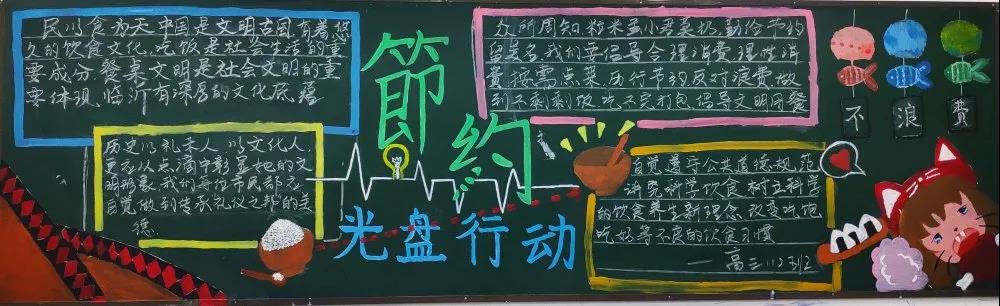 民以食为天中国是文明古国有着悠
久的饮食文化,吃饭是社会生活的重
要成分.餐桌文明是社会文明的重
要体现,临沂有深厚的文化底蕴
历史以礼未人,以文化人
更应从点滴中彰显她的文
明形象,我们每位市民都应
自觉做到传承礼仪之邦的美
德.
節约
光盘行动
众所周知,粒米虽小君莫扔,勤俭节约
留美名,我们要倡导合理消费,理性消
费按需点菜.历行节约反对浪费,做
到不剩剩饭,吃不完打包,倡导文明用餐
自觉遵守公共道德规范
讲究科学饮食,树立科学
的饮食养生新理念,改变吃饱
吃好等不良的饮食习惯
——高三(1)班
不浪费